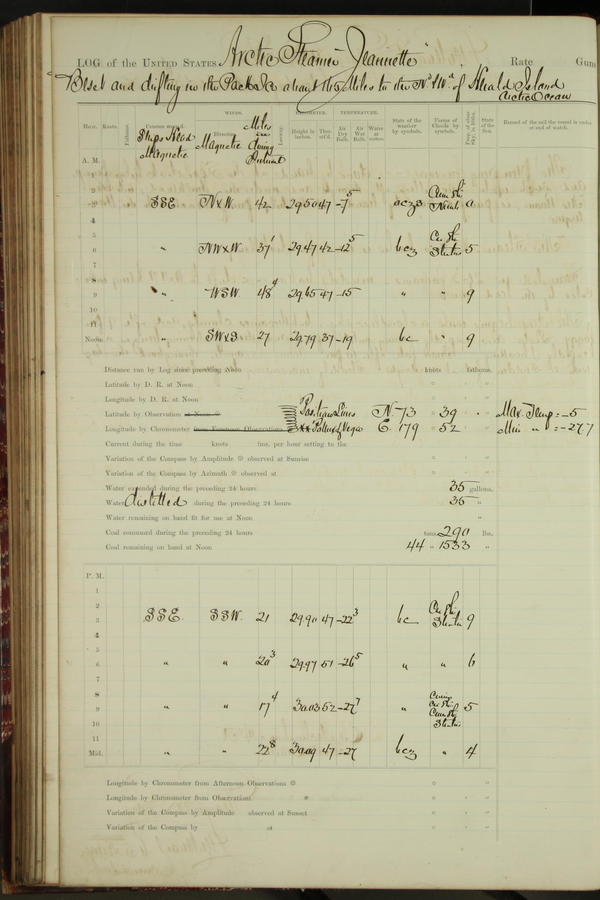 LOG of the UNITED STATES Arctic Steamer "Jeannette" Rate Gun
Beset and drifting in the Pack Ice about 165 Miles to the Nd & Wd of Herald Island
Arctic Ocean
WINDS. BAROMETER. TEMPERATURE.
Hour. Knots. Courses steered. Ships Head Magnetic Direction Magnetic Miles Leeway. Height in inches. Ther. att'd. Air Dry Bulb. Air Wet Bulb. Water at surface. State of the weather by symbols. Forms of Clouds by symbols. State of the Sea. Record of the sail the vessel is under at end of watch.
A. M.
1
2
3 SSE NxW 42 29.50 47 -7⁵ 0
4
5
6 " NWxW 37¹ 29.47 42 -12⁵ bcz 5
7
8
9 " WSW 48⁴ 29.65 47 -15 " " 9
10
11
Noon. " SWxS 27 29.79 37 -19 bc " 9
Distance run by Log since preceding Noon knots fathoms.
Latitude by D. R. at Noon
Longitude by D. R. at Noon
Latitude by Observation at Noon Position Lines N- 73 39 Max. Temp = -5
Longitude by Chronometer from Forenoon Observations Pollux & Vega E. 179 52 Min " = -27.7
Current during the time knots fms. per hour setting to the
Variation of the Compass by Amplitude observed at Sunrise
Variation of the Compass by Azimuth observed at
Water expended during the preceding 24 hours 35 gallons.
Water distilled during the preceding 24 hours 35 "
Water remaining on hand fit for use at Noon "
Coal consumed during the preceding 24 hours tons 290 lbs.
Coal remaining on hand at Noon 44 " 1533 "
P. M.
1
2
3 SSE. SSW. 21 29.90 47 -22³ bc 9
4
5
6 " " 20³ 29.97 51 -26⁵ " " 6
7
8
9 " " 17⁴ 30.03 52 -27⁷ " 5
10
11
Mid. " " 22⁸ 30.09 47 -27 bcz " 4
Longitude by Chronometer from Afternoon Observations
Longitude by Chronometer from Observations
Variation of the Compass by Amplitude observed at Sunset
Variation of the Compass by at